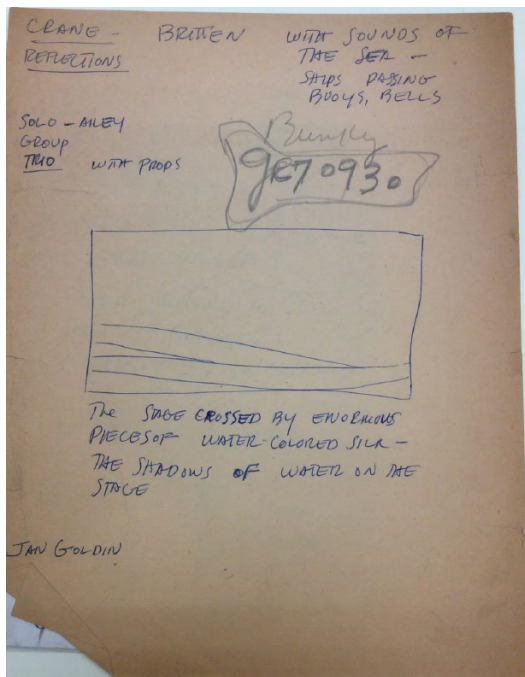 CRANE - BRITTEN WITH SOUNDS OF
REFLECTIONS THE SEA -
SHIPS PASSING
BUOYS, BELLS
SOLO - AILEY
GROUP
TRIO WITH PROPS
Bunky
GR7 0930
THE STAGE CROSSED BY ENORMOUS
PIECES OF WATER-COLORED SILK -
THE SHADOWS OF WATER ON THE
STAGE
JAN GOLDIN